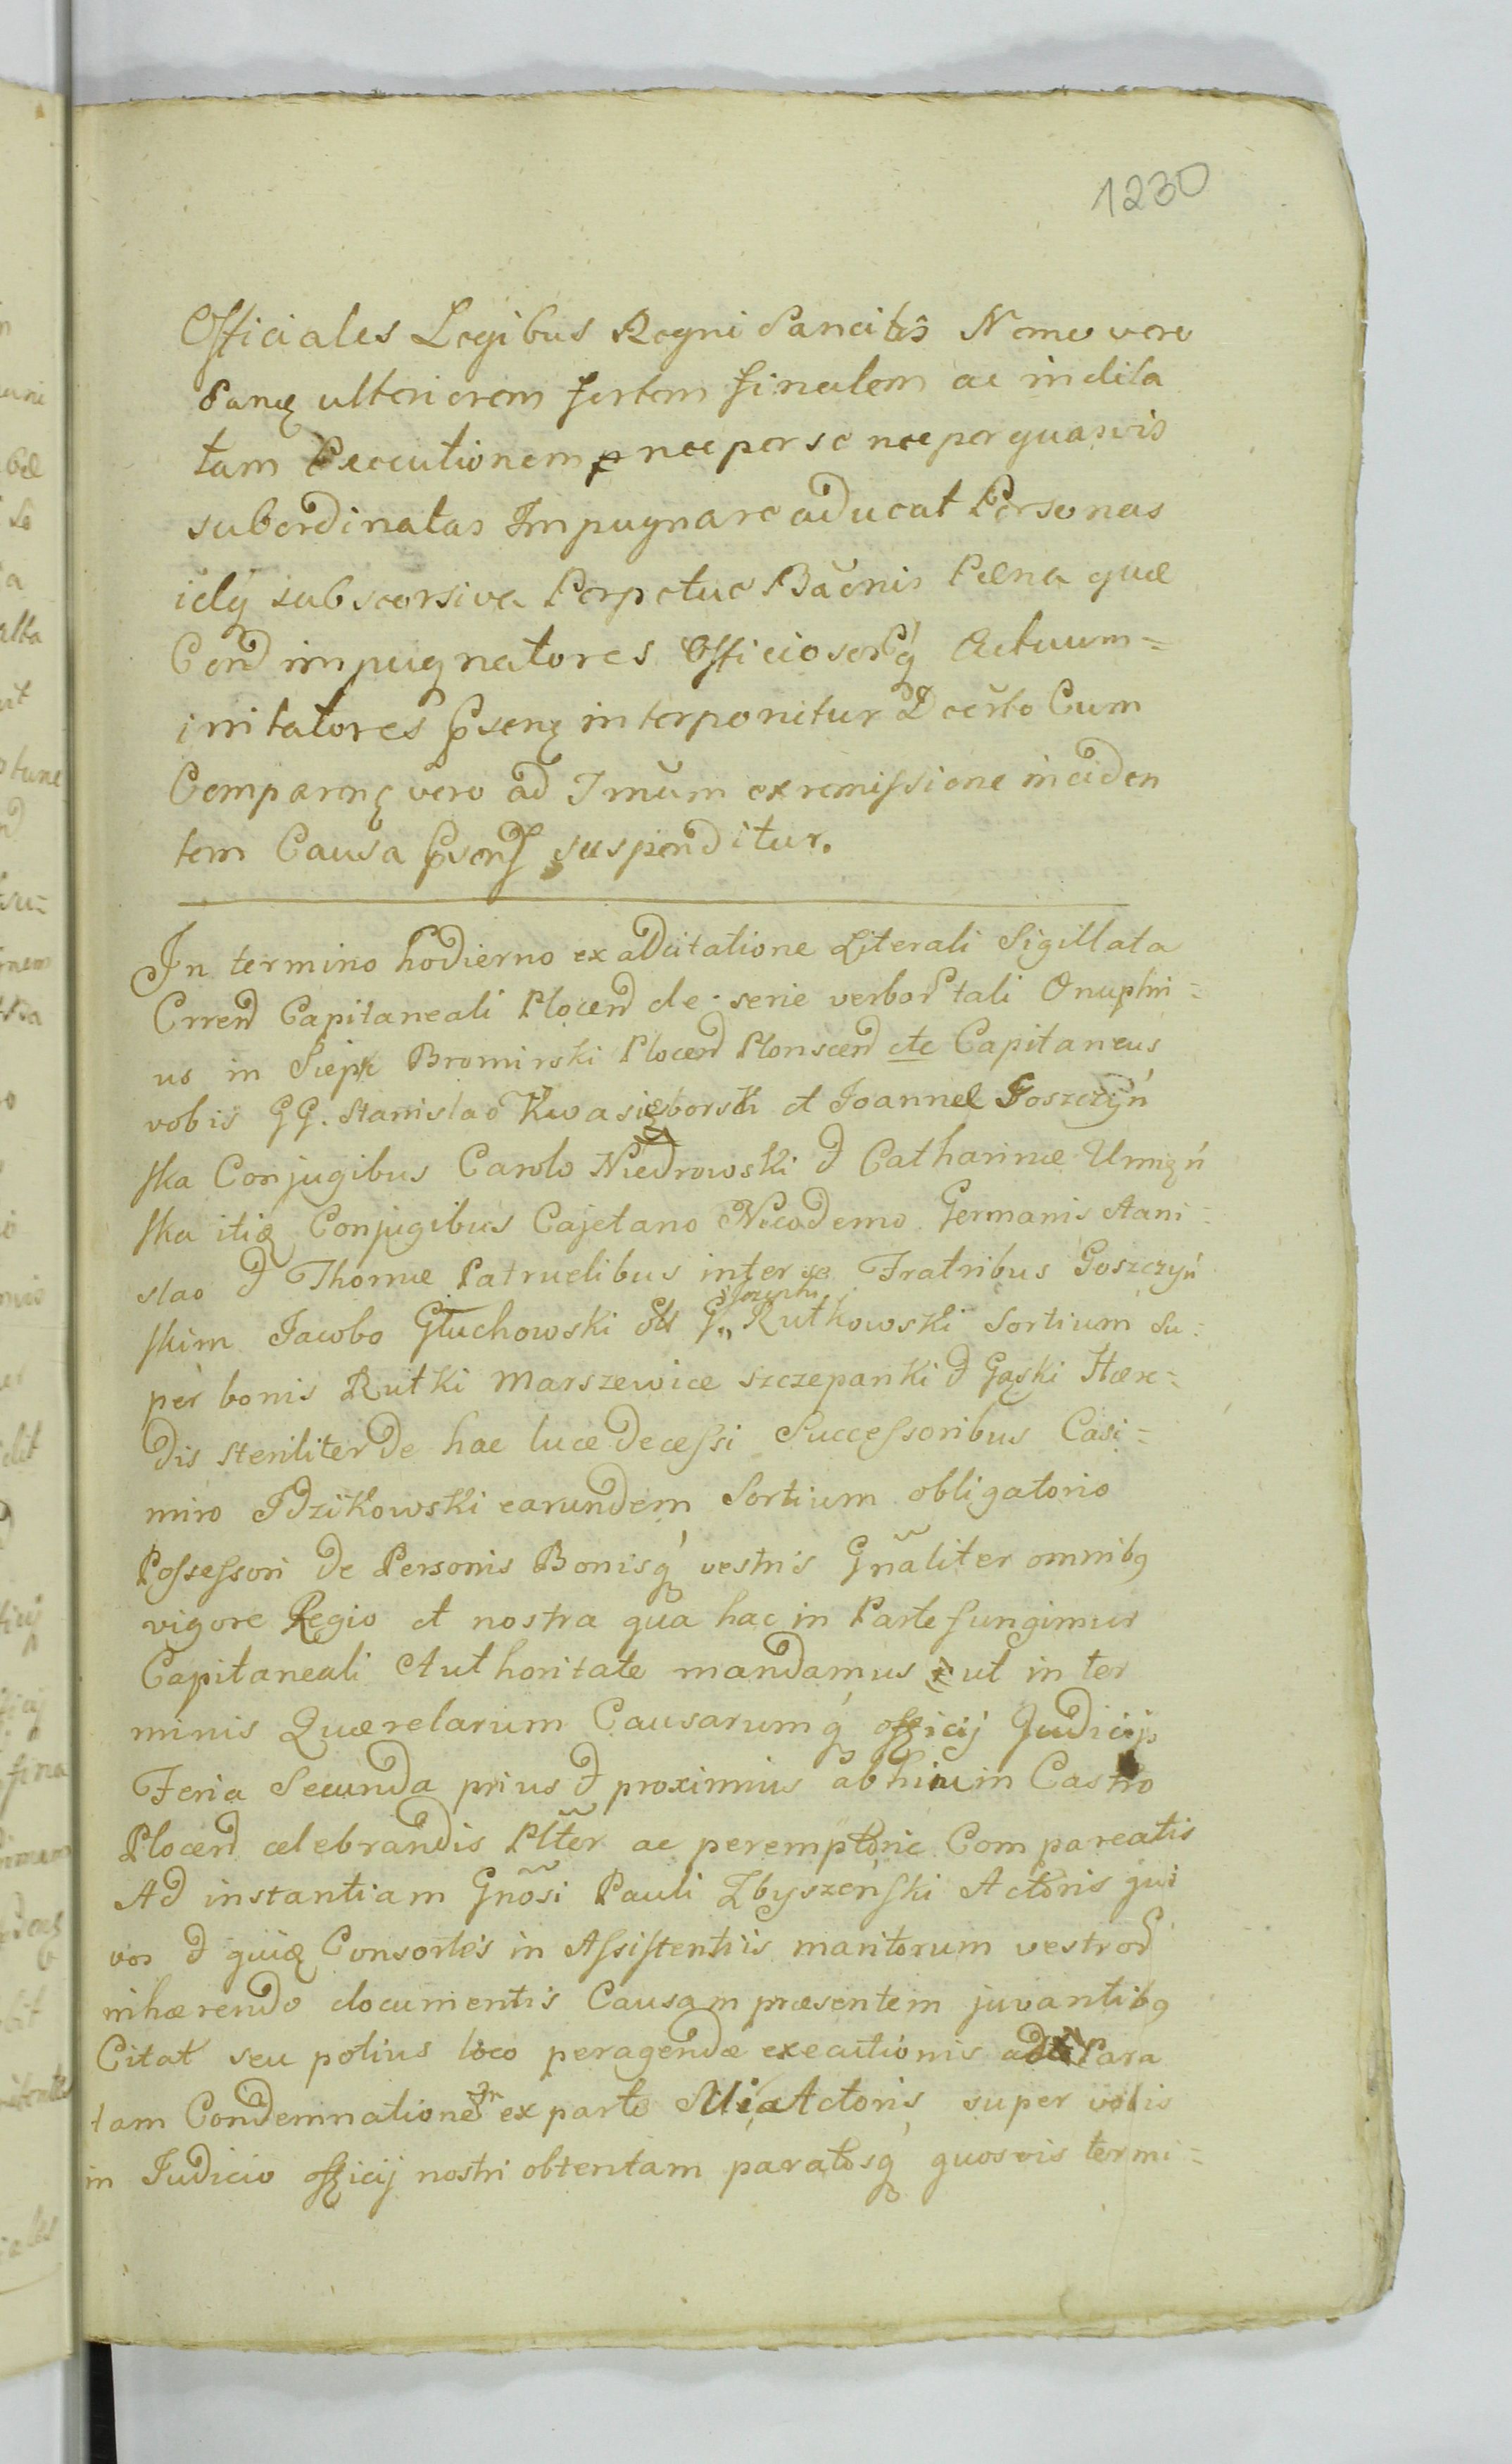 1230
Officiales Legibus Regni Sancitis Nemo vero
Panę ulteriorem fortem finalem ac indila
tam Executionem nec per se nec per quasvis
subordinatas Impugnare aducat Personas
idq́ sub scorsiva Perpetuo Bãonis Pæna quæ
Cond impugnatores Officiosorq́ Actuum=
irritatores Pseną interponitur Decr̃to Cum
Comparenę vero ad Imũm ex remissione inciden
tem Causa Psens suspenditur.
In termino hodierno ex adcitatione Literali Sigillata
Crrend Capitaneali Plocend de serie verbor tali Onuphri=
us in Siepr Bromirski Plocend Plonscend etc Capitaneus
vobis GG. Stanislao Kwasięborski et Joannæ Goszczyń
ska Conjugibus Carolo Niedrowski & Catharinæ Umięń
ska itię Conjugibus Cajetano Nicodemo Germanis Stani=
slao & Thomæ Patruelibus inter se Fratribus Goszczyń
skim Jacobo Głuchowski G. Josephi Rutkowski Sortium su=
per bonis Rutki Marszewice Szczepanki & Gąski Hære=
dis steriliter de hac luce decessi Successoribus Casi=
miro Idzikowski earundem Sortium obligatorio
Possessori de Personis Bonisq́ vestris Gñaliter omnibq
vigore Regio et nostra qua hac in Parte fungimur
Capitaneali Authoritate mandamus ut in ter
minis Quærelarum Causarumq́ officij Judicijs
Feria Secunda prius & proximius abhinc in Castro
Plocend celebrandis Pltẽr ac peremptorie Compareatis
Ad instantiam Gñosi Pauli Zbyszeński Actoris qui
vos & quię Consortes in Assistentiis maritorum vestror
inhærendo documentis Causam præsentem juvantibq
Citat seu potius loco peragendæ executionis ad Para
tam Condemnationem ex parte Actoris super vobis
in Judicio officij nostri obtentam paratosq́ quosvis termi=